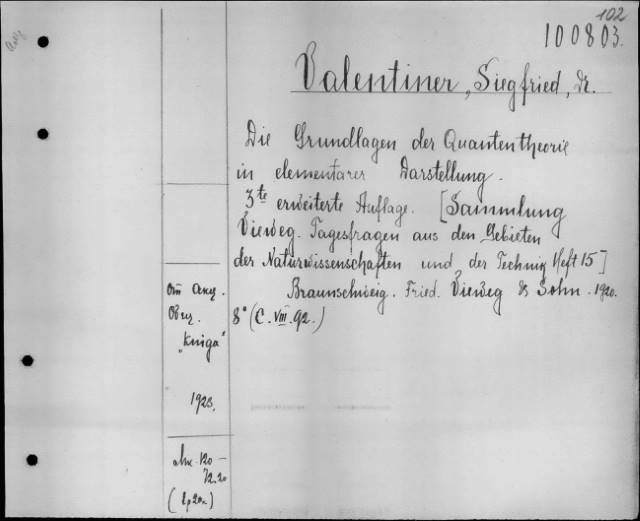 102
100803.
Valentiner, Siegfried, Dr.
Die Grundlagen der Quantentheorie
in elementarer Darstellung.
3te erweiterte Auflage. [Sammlung
Vieweg. Tagesfragen aus den Gebieten
der Naturwissenschaften und der Technik Heft 15]
Braunschweig. Fried. Vieweg & Sohn. 1920.
8° (C. VIII. 92.)
"Kniga"
1923.
120 –